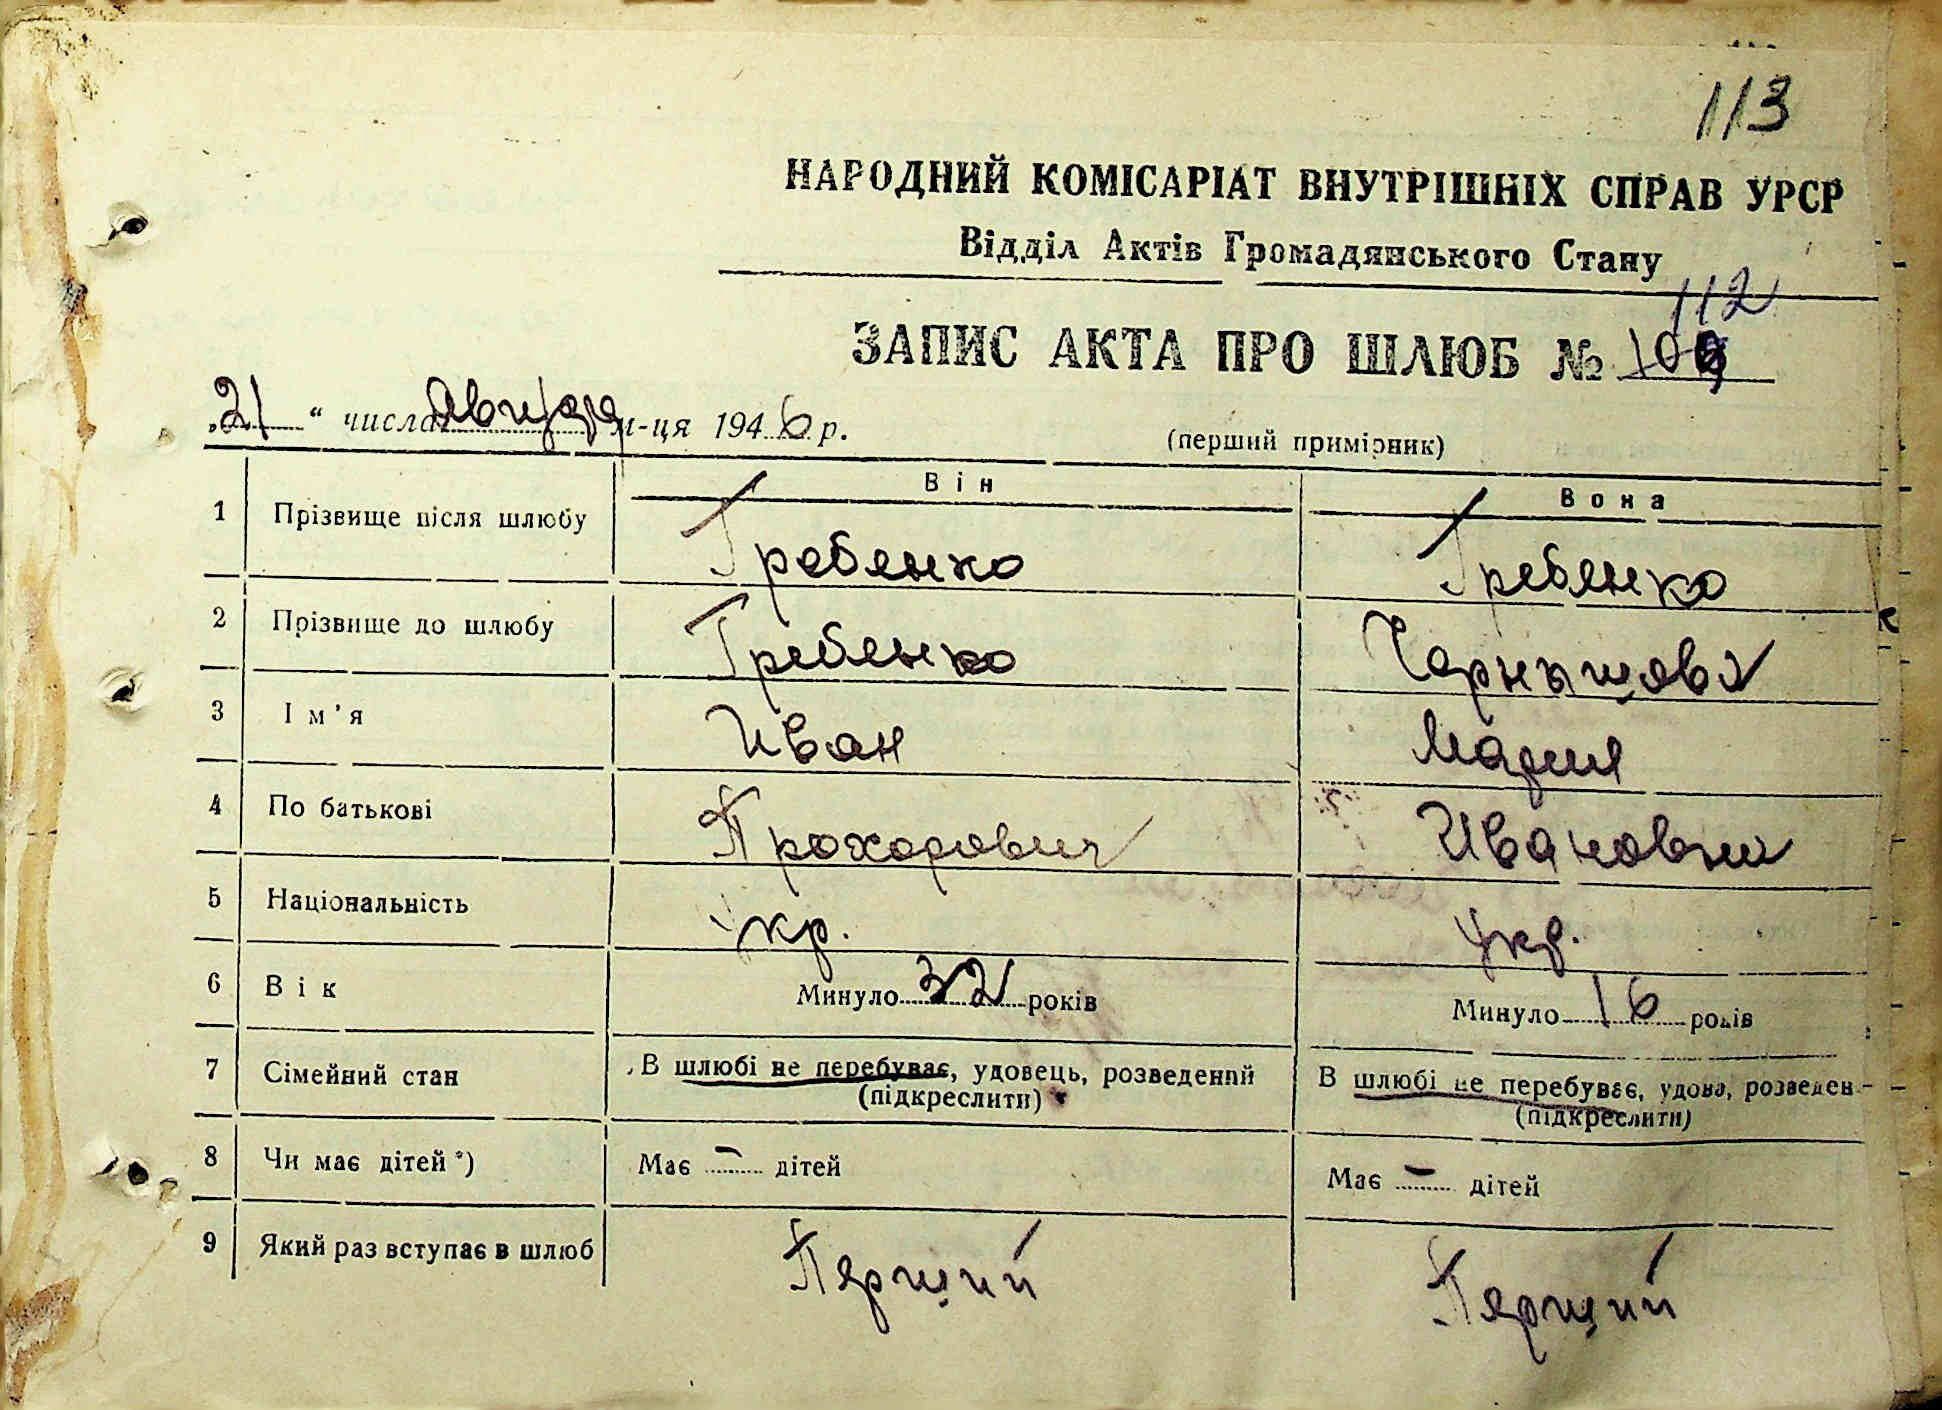 113
НАРОДНИЙ КОМІСАРІАТ ВНУТРІШНІХ СПРАВ УРСР
Відділ Актів Громадянського Стану
112
ЗАПИС АКТА ПРО ШЛЮБ №
„21“ числа м-ця 1946 р.
(перший примірник)
Він Вона
1 Прізвище після шлюбу Гребенко Гребенко
2 Прізвище до шлюбу Гребенко Чернышева
3 Ім'я Иван Мария
4 По батькові Прохорович Ивановни
5 Національність Укр. Укр.
6 Вік Минуло 32 років Минуло 16 років
7 Сімейний стан В шлюбі не перебуває, удовець, розведений В шлюбі не перебуває, удова, розведен-
(підкреслити) (підкреслити)
8 Чи має дітей *) Має – дітей Має – дітей
9 Який раз вступає в шлюб Перший Перший